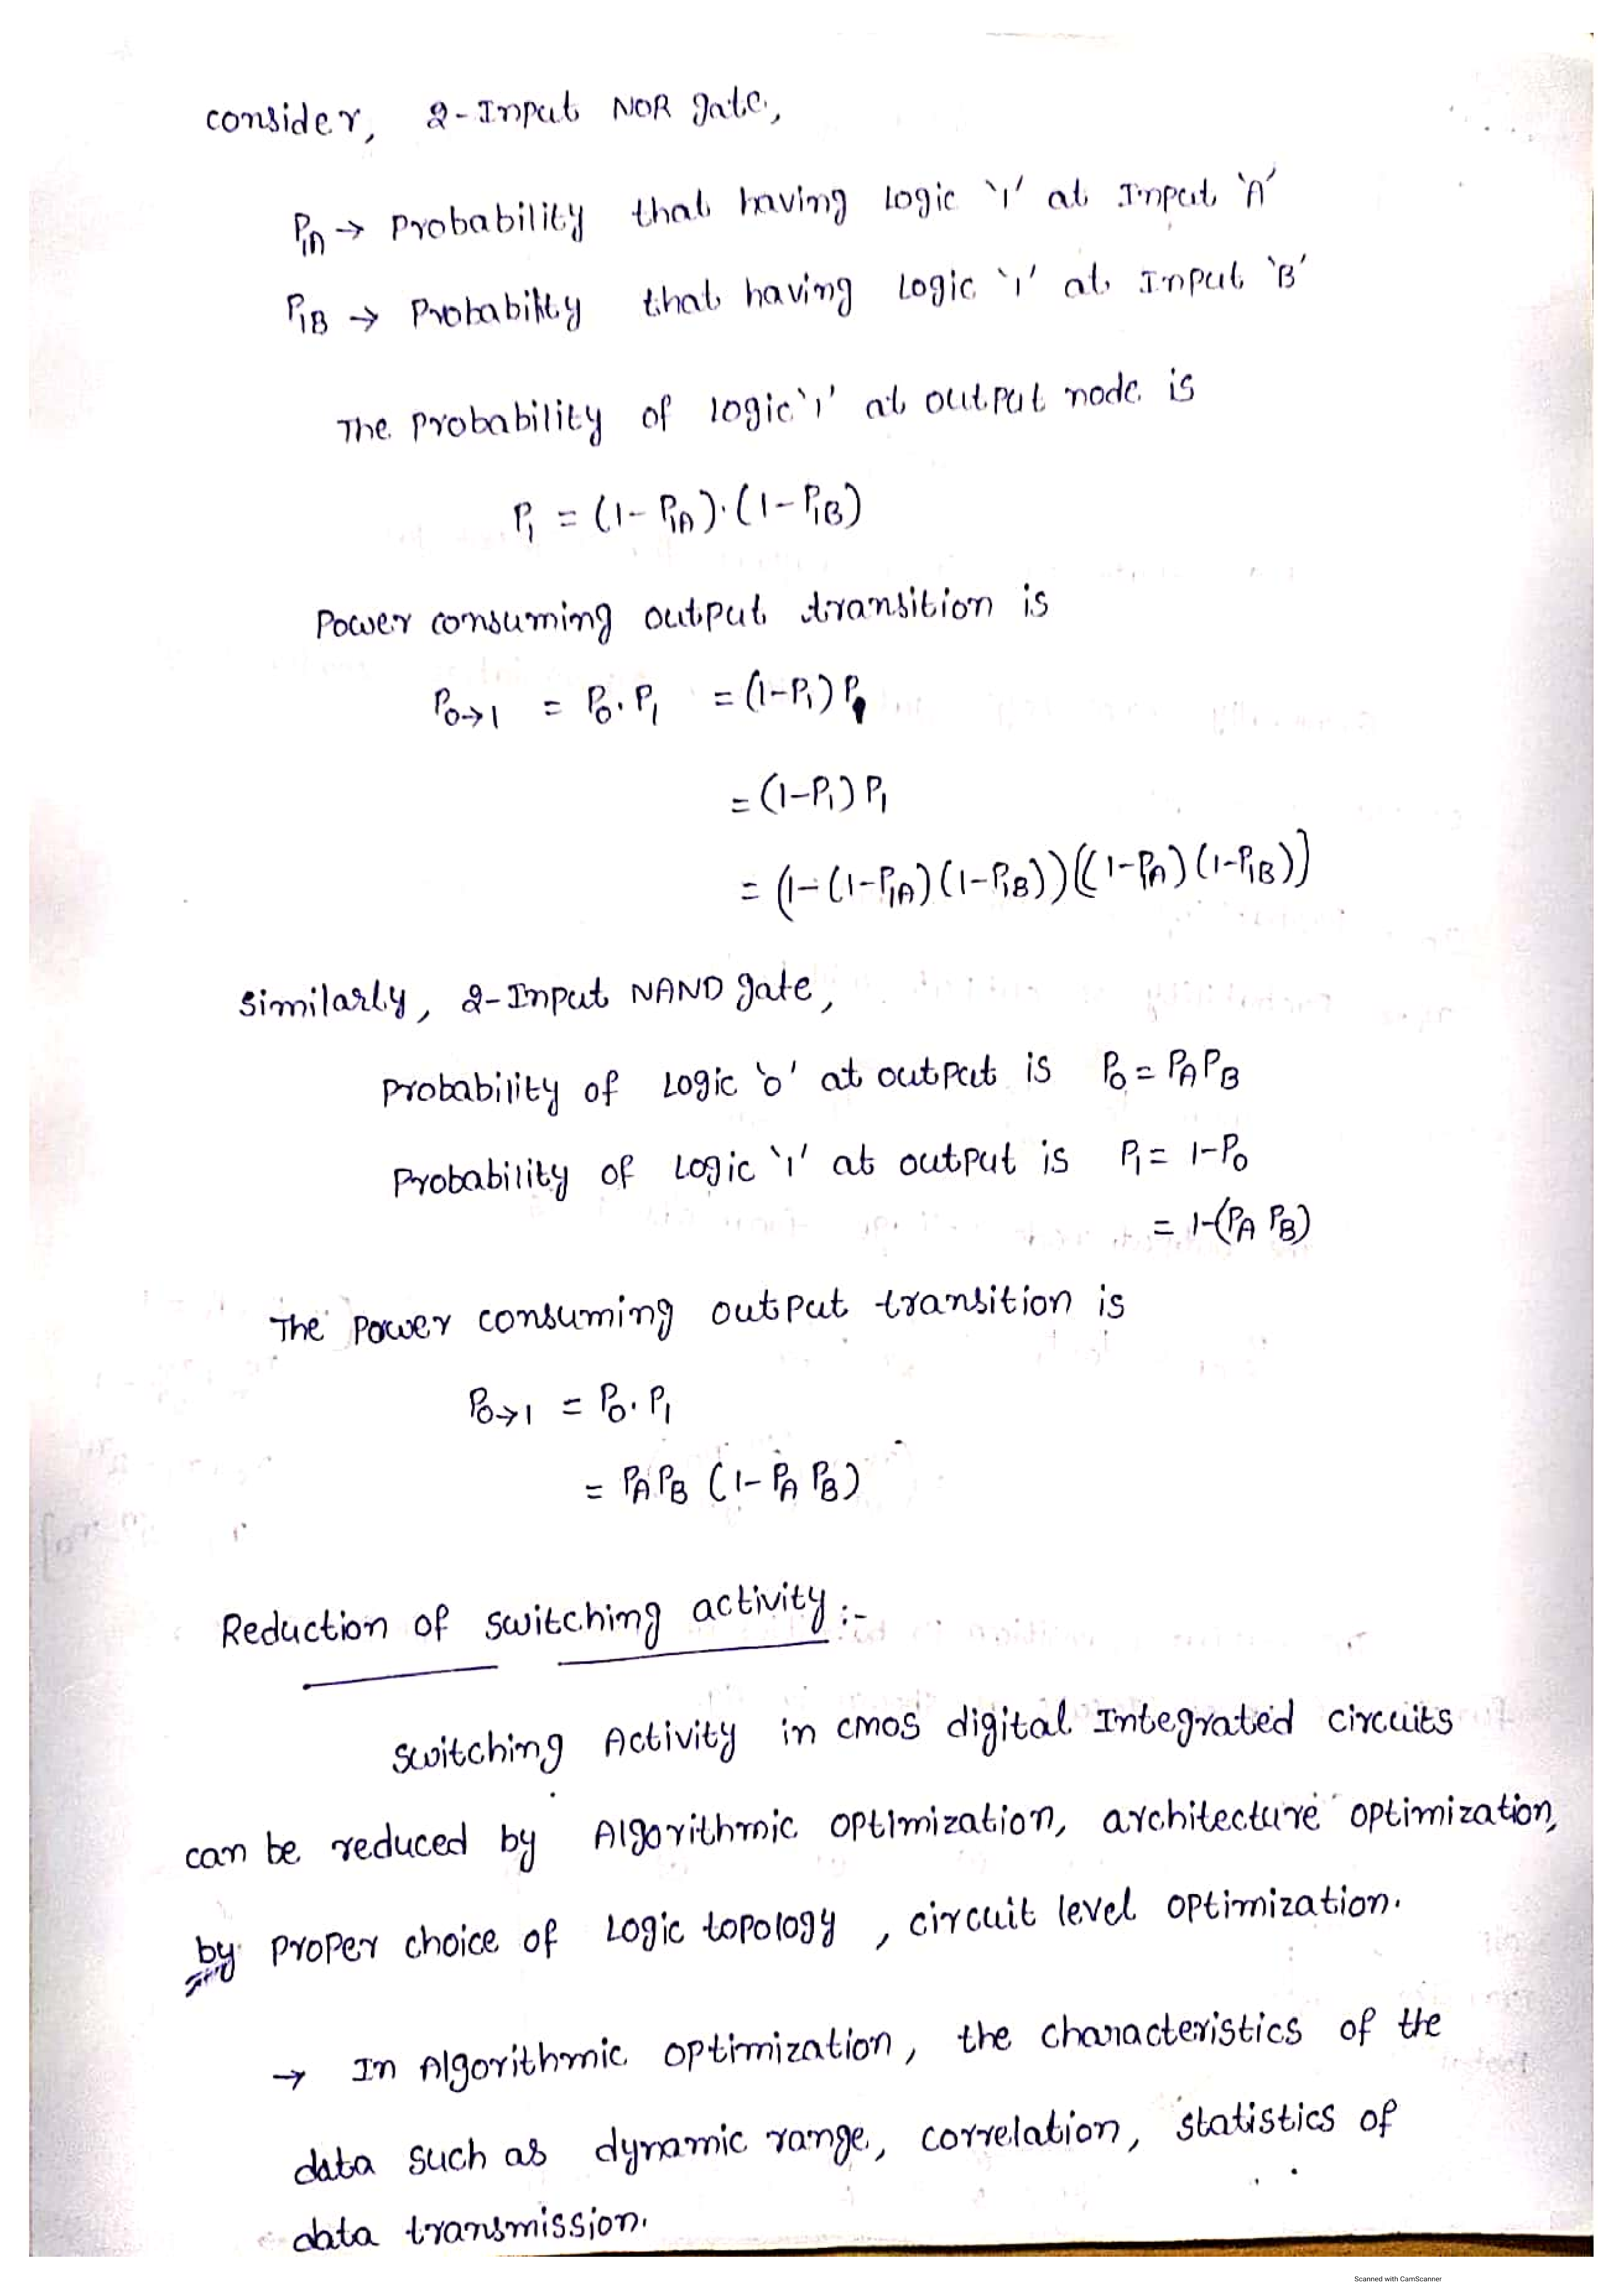 consider, 2-Input NOR gate,
P1A → Probability that having Logic '1' at Input 'A'
P1B → Probability that having Logic '1' at Input 'B'
The Probability of logic '1' at output node is
P1 = (1-P1A).(1-P1B)
Power consuming output transition is
P0→1 = P0.P1 = (1-P1)P1
= (1-P1)P1
= (1-(1-P1A)(1-P1B))((1-P1A)(1-P1B))
similarly, 2-Input NAND gate,
Probability of Logic '0' at output is P0 = PA PB
Probability of Logic '1' at output is P1 = 1-P0
= 1-(PA PB)
The Power consuming output transition is
P0→1 = P0.P1
= PA PB (1-PA PB)
Reduction of switching activity :-
switching Activity in cmos digital Integrated circuits
can be reduced by Algorithmic optimization, architecture optimization,
by proper choice of Logic topology, circuit level optimization.
→ In Algorithmic optimization, the characteristics of the
data such as dynamic range, correlation, statistics of
data transmission.
Scanned with CamScanner